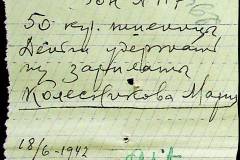 50 кгр. пшеницы
Деньги удержать
из зарплаты
Колесникова Мария
18/6-1942